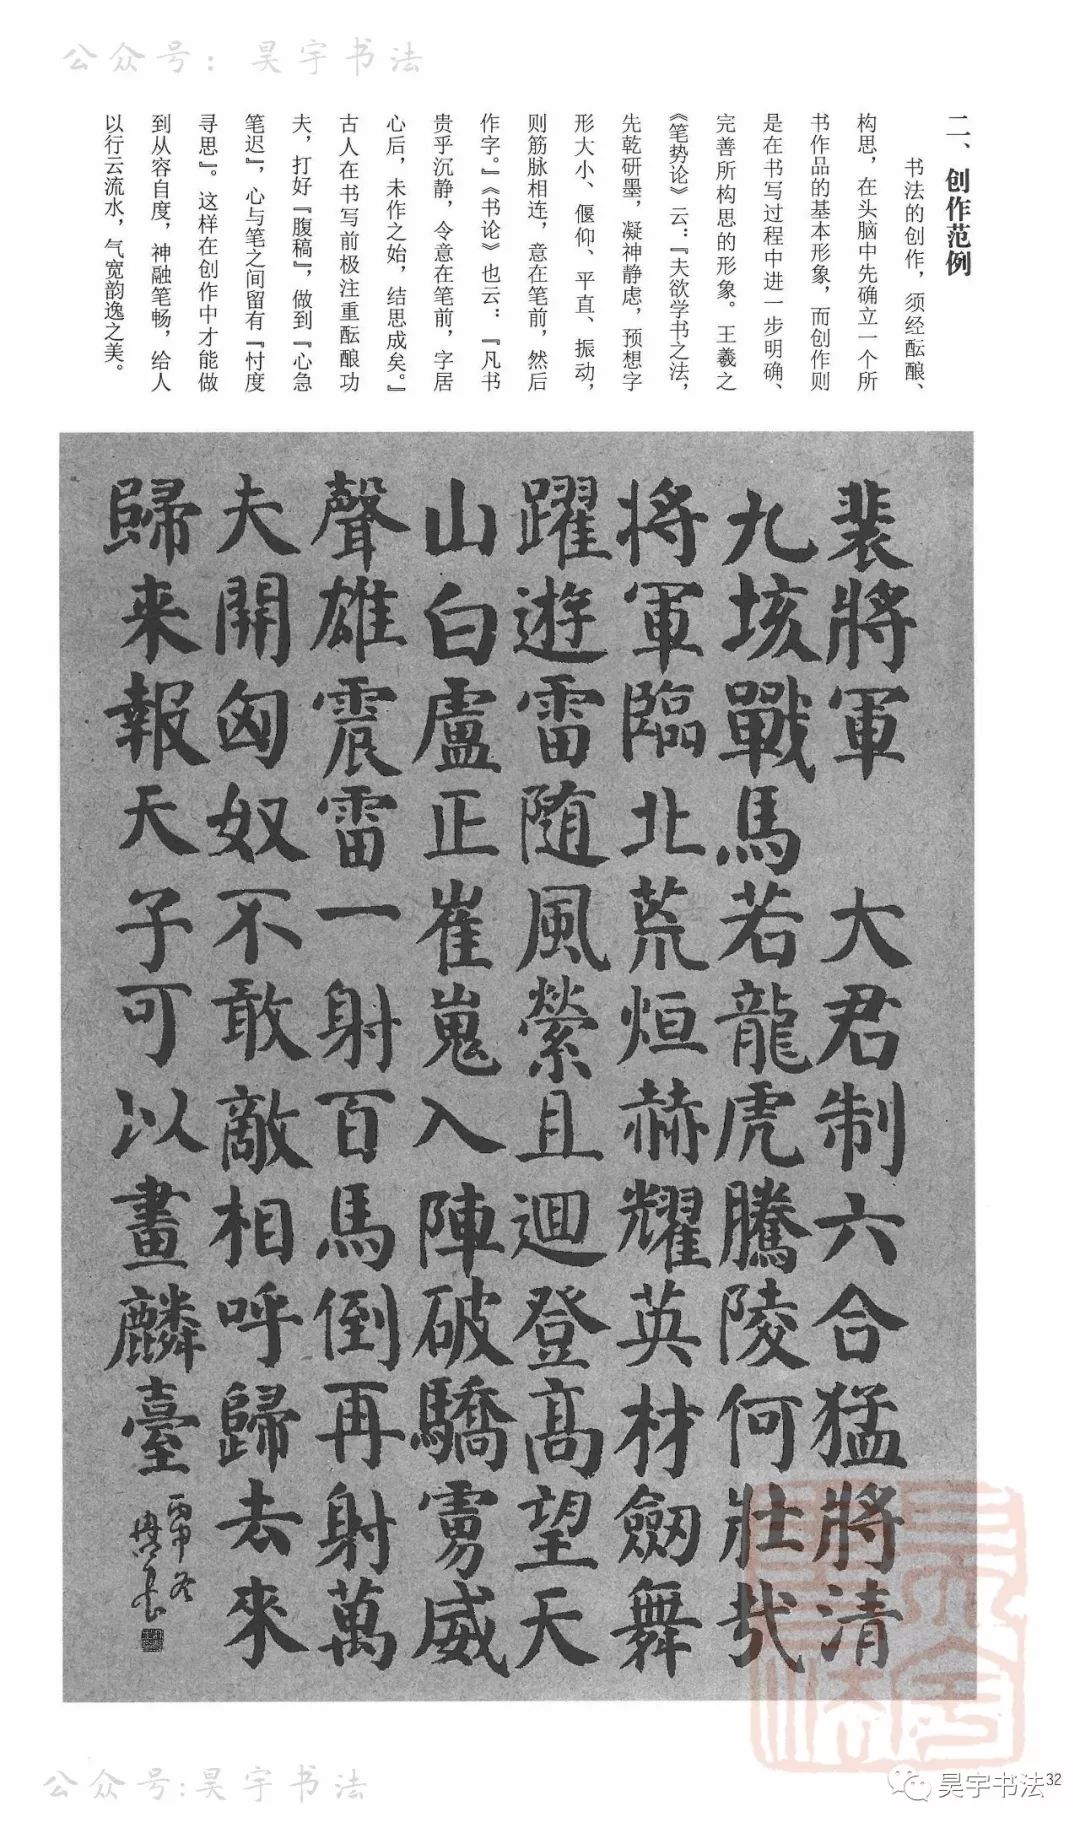 公众号：昊宇书法
二、创作范例
书法的创作，须经酝酿、
构思，在头脑中先确立一个所
书作品的基本形象，而创作则
是在书写过程中进一步明确、
完善所构思的形象。王羲之
《笔势论》云：『夫欲学书之法，
先乾研墨，凝神静虑，预想字
形大小、偃仰、平直、振动，
则筋脉相连，意在笔前，然后
作字。』《书论》也云：『凡书
贵乎沉静，令意在笔前，字居
心后，未作之始，结思成矣。』
古人在书写前极注重酝酿功
夫，打好『腹稿』，做到『心急
笔迟』，心与笔之间留有『忖度
寻思』。这样在创作中才能做
到从容自度，神融笔畅，给人
以行云流水，气宽韵逸之美。
裴將軍 大君制六合猛將清
九垓戰馬若龍虎騰陵何壯哉
將軍臨北荒烜赫耀英材劔舞
躍遊雷随風縈且迴登高望天
山白盧正崔嵬入陣破驕虜威
聲雄震雷一射百馬倒再射萬
夫開匈奴不敢敵相呼歸去來
歸来報天子可以畫麟臺
公众号:昊宇书法
昊宇书法
32